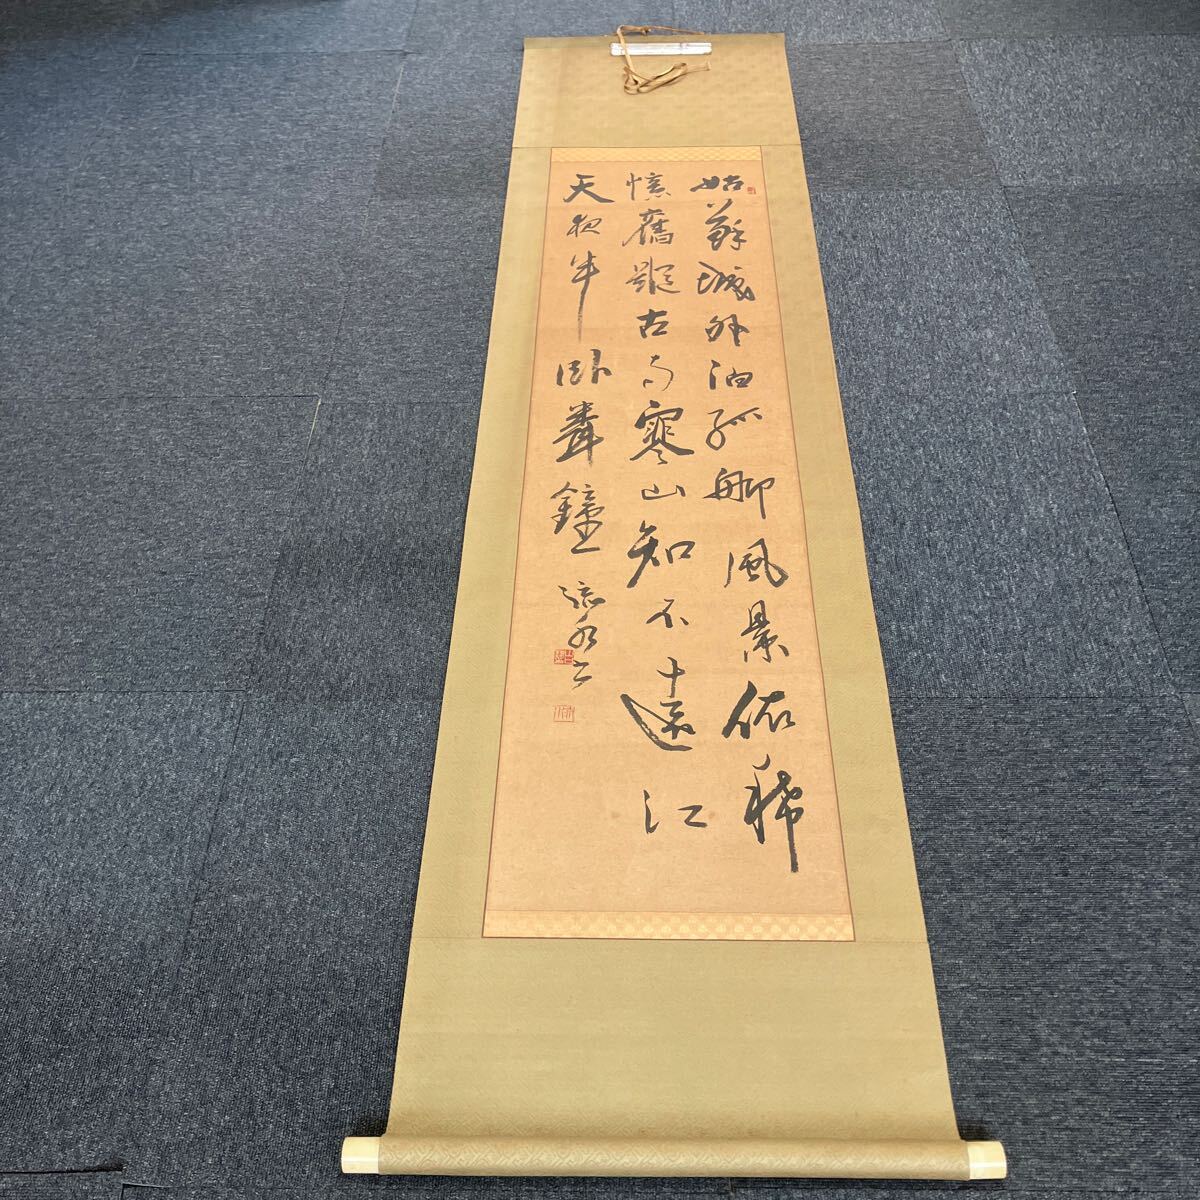 姑蘇城外泊孤艸風景依稀
憶舊蹤古寺寒山知不遠江
天夜半臥聽鐘